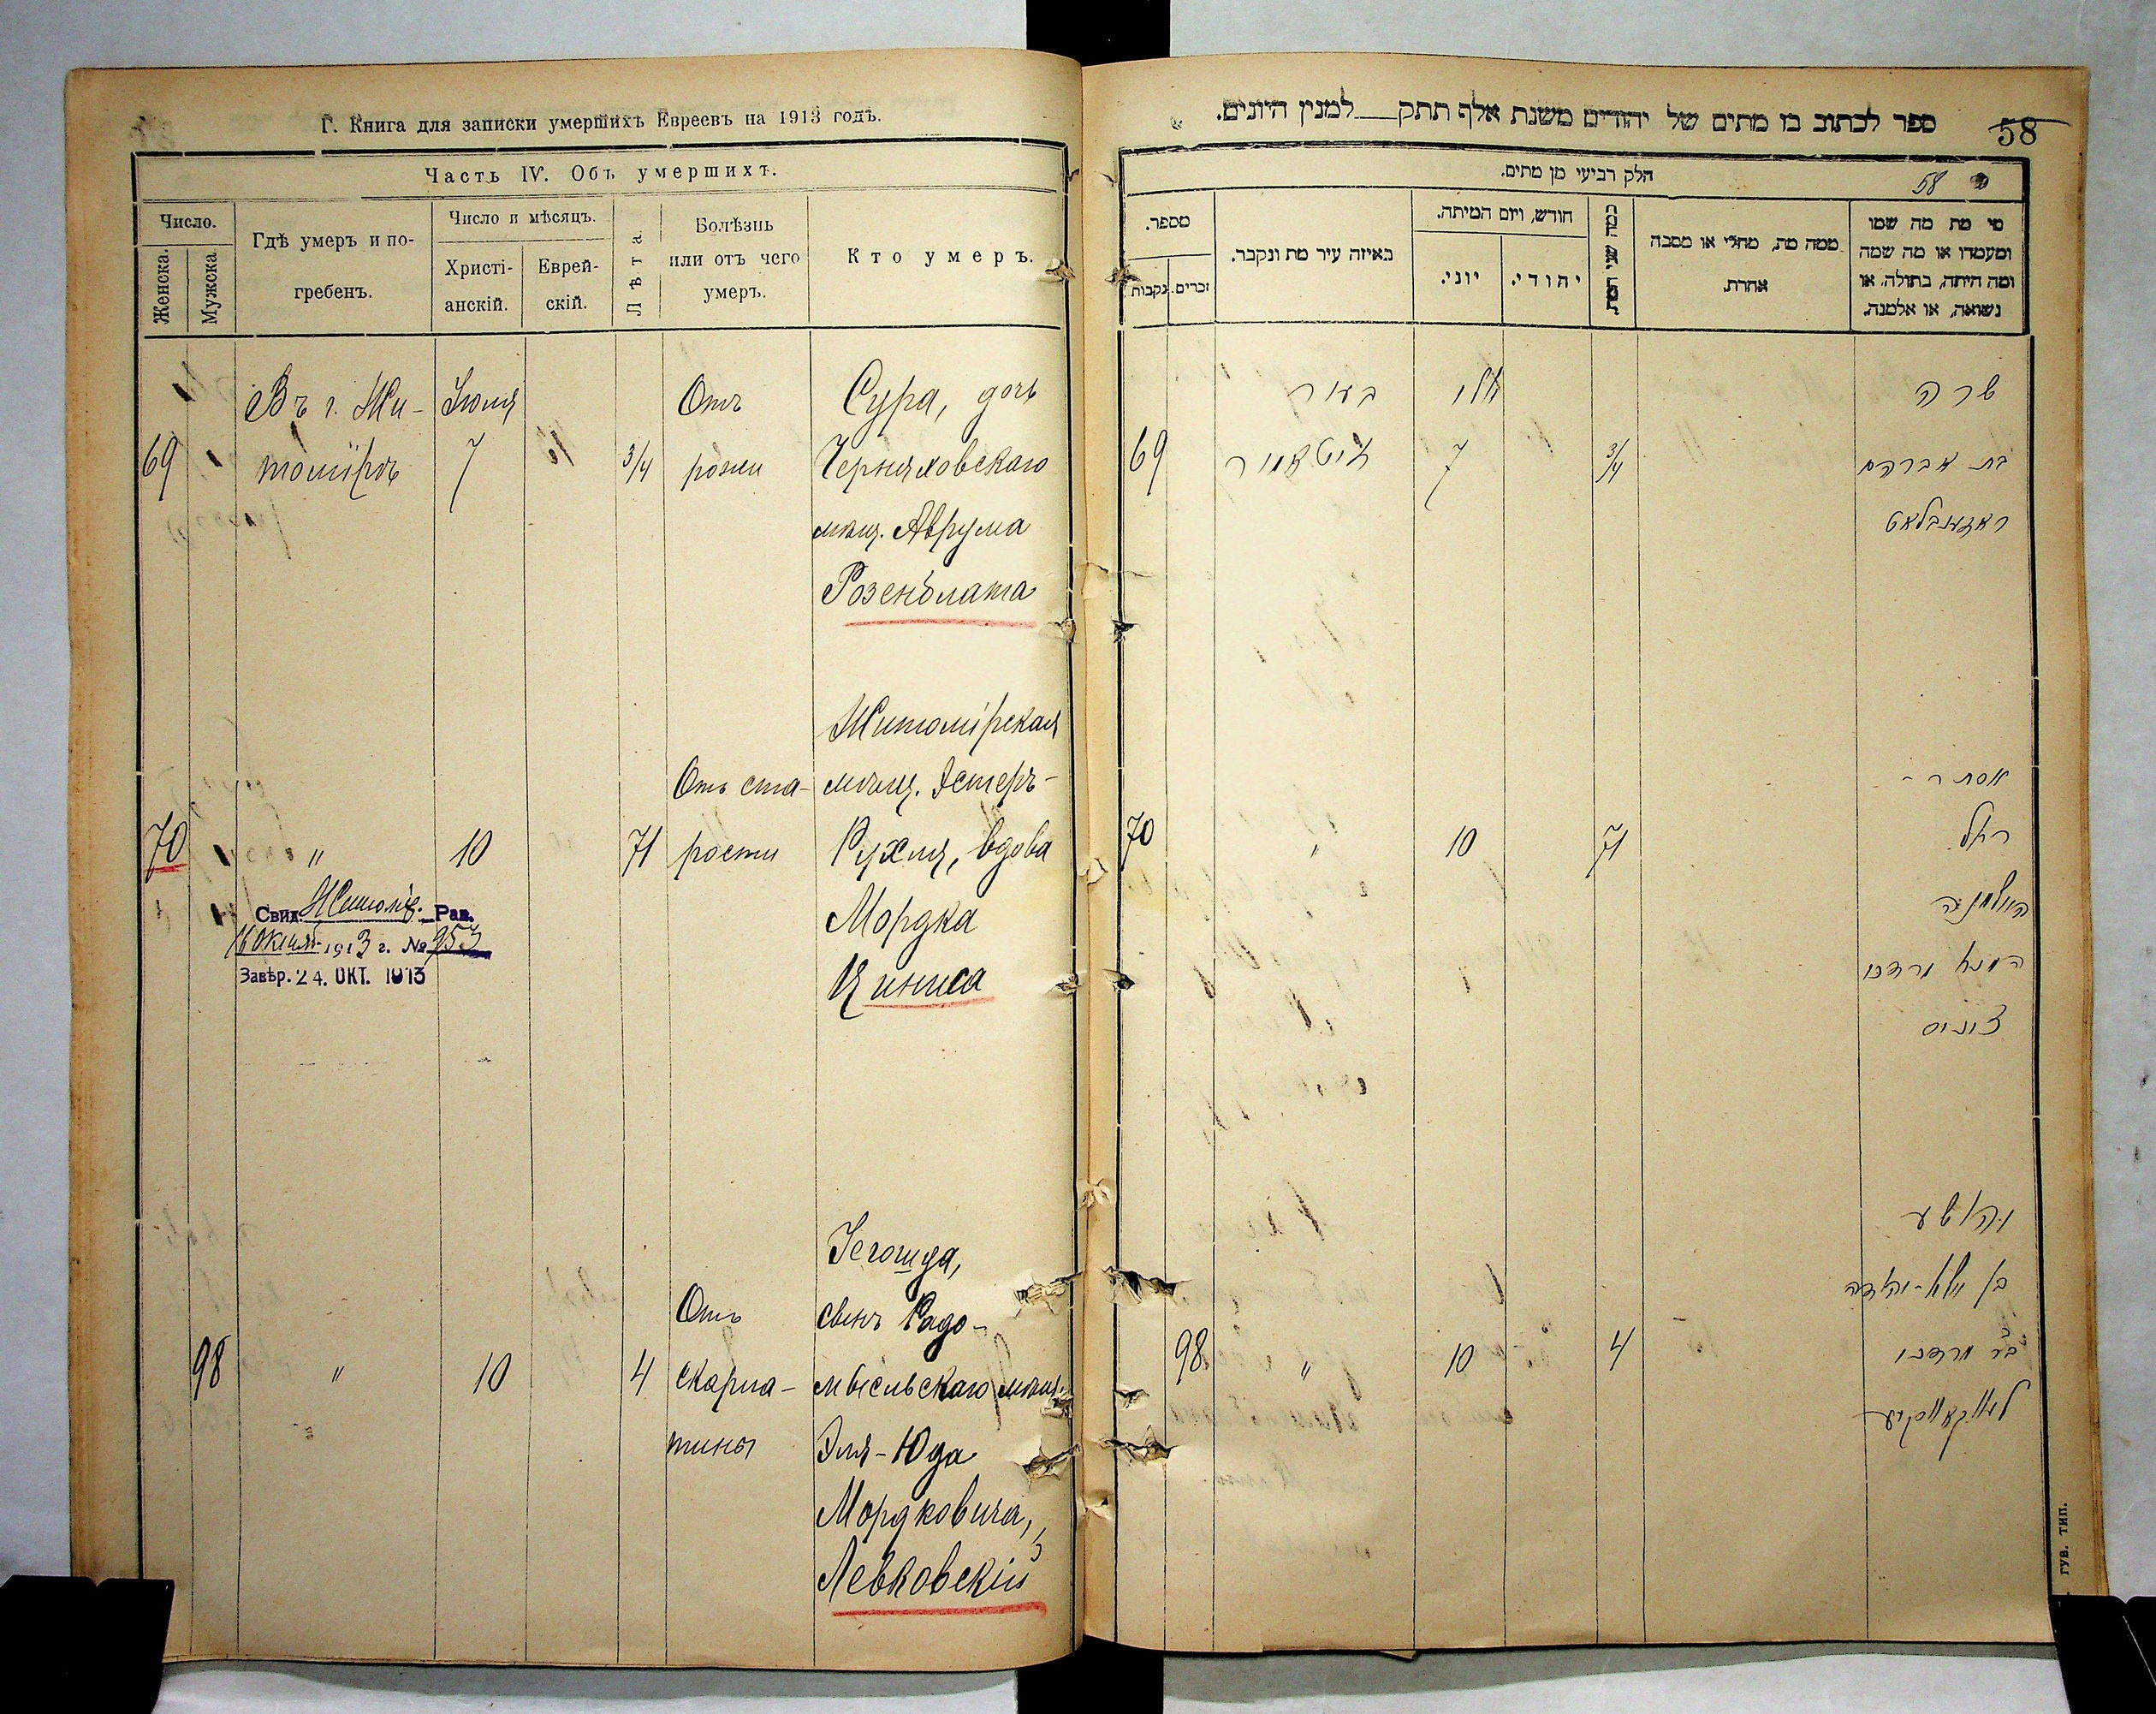 Г. Книга для записки умершихъ Евреевъ на 1913 годъ.
Часть IV. Объ умершихъ.
Число.
Женска.
Мужска.
Гдѣ умеръ и по-
гребенъ.
Число и мѣсяцъ.
Христі-
анскій.
Еврей-
скій.
Лѣта.
Болѣзнь
или отъ чего
умеръ.
Кто умеръ.
Въ г. Жи- Іюля Отъ Сура, дочь
69 томірѣ 7 3/4 рожи Черняховскаго
мѣщ. Аврума
Розенблата
Житомірская
Отъ ста- мѣщ. Эстеръ-
70 " 10 71 рости Рухля, вдова
Мордка
Циниса
Свид. Житомір. Рав.
16 Октяб. 1913 г. № 953
Завѣр. 24. ОКТ. 1913
Іегошуа,
Отъ сынъ Радо-
98 " 10 4 скарла- мысльскаго мѣщ.
тины Эля-Юда
Мордковича,
Левковскій
ספר לכתוב בו מתים של יהודים משנת אלף תתק למנין היונים.
58
חלק רביעי מן מתים.
58
מספר.
נקבות
זכרים.
באיזה עיר מת ונקבר.
חודש, ויום המיתה.
יוני.
יהודי.
כמה שני המת
ממה מת, מחלי או מסבה
אחרת.
מי מת מה שמו
ומעמדו או מה שמה
ומה היתה, בתולה, או
נשואה, או אלמנה.
שרה
יולי
בעיר
69 זיטאמיר 7 3/4 בת אברהם
ראזענבלאט
אסתר -
70 " 10 71 רחל
האלמנה
מרדכי
ציניס
יהושע
בן אלי-יהודה
98 " 10 4 בר מרדכי
לעווקאווסקי
губ. тип.